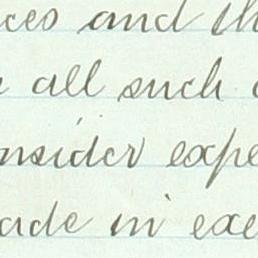 ces and th
all such
nsider expe
ade in exe